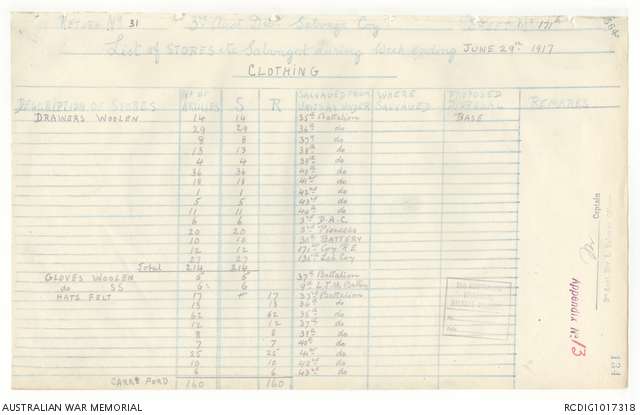 RETURN No 31 3rd Aust Div Salvage Coy SHEET No 171
List of STORES etc Salvaged during Week ending JUNE 29th 1917
CLOTHING
DESCRIPTION OF STORES No OF ARTICLES S R SALVAGED FROM WHERE SALVAGED PROPOSED DISPOSAL REMARKS
DRAWERS WOOLEN 14 14 35th Battalion BASE
29 29 36th do
8 8 37th do
13 13 38th do
4 4 39th do
36 36 40th do
18 18 41st do
1 1 42nd do
5 5 43rd do
11 11 44th do
6 6 3rd D.A.C
20 20 3rd Pioneers
10 10 BATTERY
12 12 171st Coy R.E
27 27 Coy
Total 214 214
GLOVES WOOLEN 5 5 37th Battalion
do SS 6 6 9th L.T.M. Battery
HATS FELT 17 17 Battalion
13 13 do
62 62 35th do
12 12 37th do
8 8 do
7 7 40th do
25 25 41st do
10 10 42nd do
6 6 43rd do
CARRd FORD 160 160
Captain
Appendix No 13
134
AUSTRALIAN WAR MEMORIAL RCDIG1017318